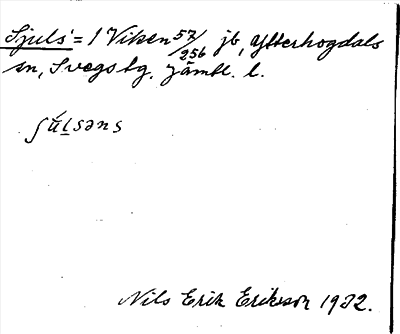 Sjuls' = 1 Viken 57/256 jb, Ytterhogdals
sn, Svegs tg. Jämtl. l.
ʃu̇lsəns
Nils Erik Eriksson 1932.